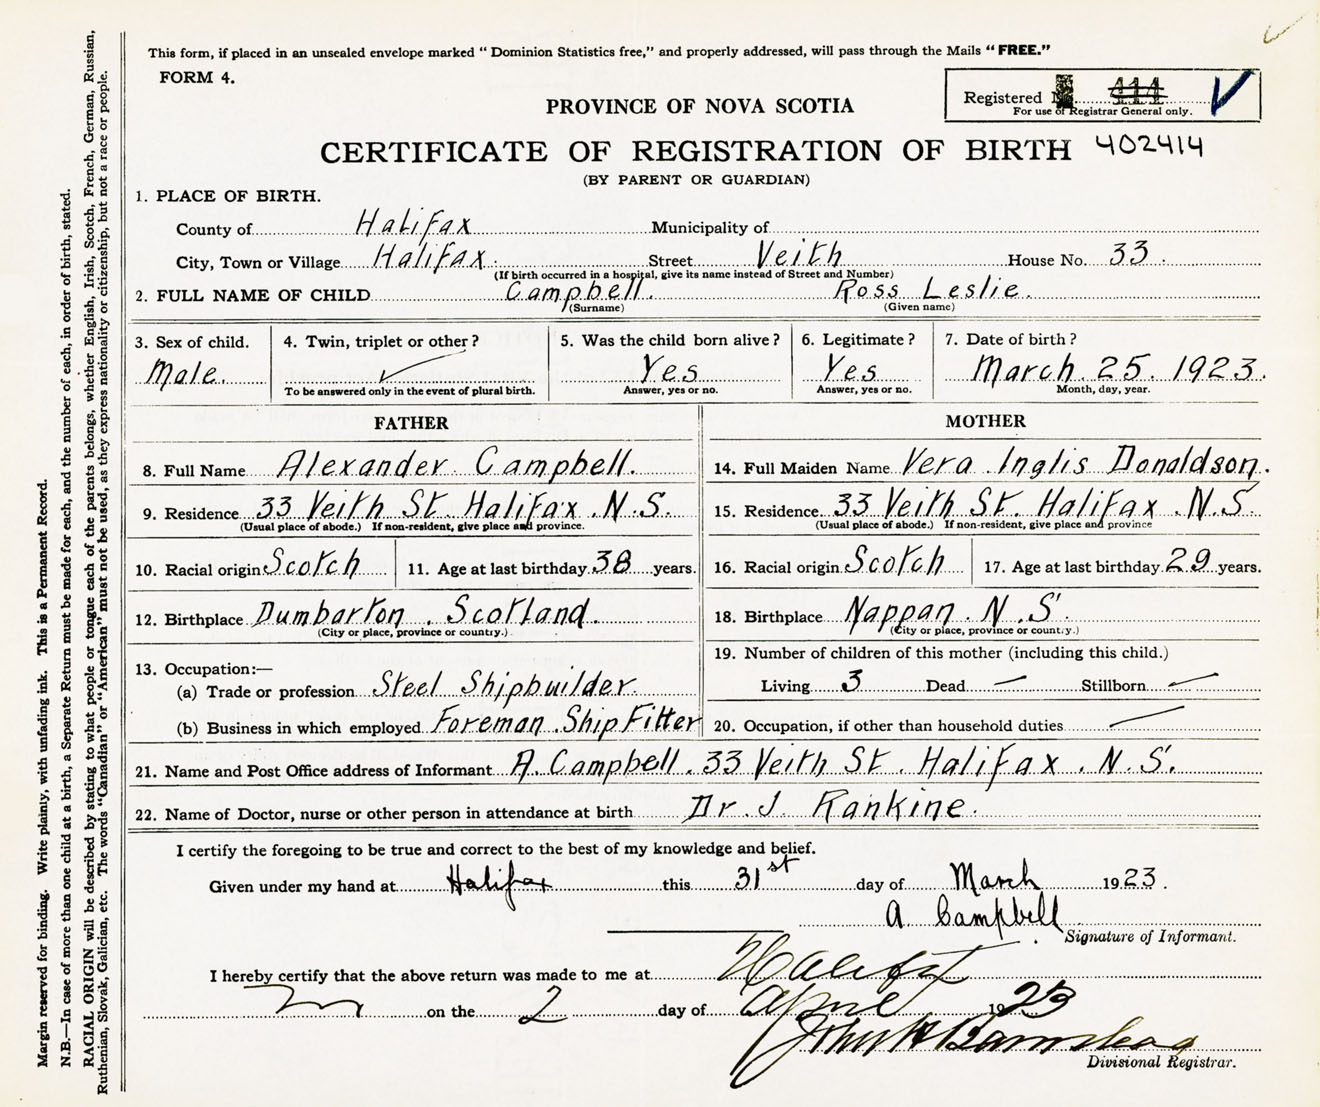 This form, if placed in an unsealed envelope marked “ Dominion Statistics free,” and properly addressed, will pass through the Mails “ FREE.”
FORM 4.
Registered 414
For use of Registrar General only.
PROVINCE OF NOVA SCOTIA
CERTIFICATE OF REGISTRATION OF BIRTH 402414
(BY PARENT OR GUARDIAN)
1. PLACE OF BIRTH.
County of Halifax Municipality of
City, Town or Village Halifax. Street Veith House No. 33.
(If birth occurred in a hospital, give its name instead of Street and Number)
2. FULL NAME OF CHILD Campbell. Ross Leslie.
(Surname) (Given name)
3. Sex of child. 4. Twin, triplet or other? 5. Was the child born alive? 6. Legitimate? 7. Date of birth?
Male. Yes Yes March 25. 1923.
To be answered only in the event of plural birth. Answer, yes or no. Answer, yes or no. Month, day, year.
FATHER MOTHER
8. Full Name Alexander Campbell. 14. Full Maiden Name Vera Inglis Donaldson.
9. Residence 33 Veith St. Halifax. N.S. 15. Residence 33 Veith St. Halifax. N.S.
(Usual place of abode.) If non-resident, give place and province. (Usual place of abode.) If non-resident, give place and province
10. Racial origin Scotch 11. Age at last birthday 38 years. 16. Racial origin Scotch 17. Age at last birthday 29 years.
12. Birthplace Dumbarton. Scotland. 18. Birthplace Nappan. N.S.
(City or place, province or country.) (City or place, province or country.)
13. Occupation:— 19. Number of children of this mother (including this child.)
(a) Trade or profession Steel Shipbuilder. Living 3 Dead — Stillborn —
(b) Business in which employed Foreman Ship Fitter 20. Occupation, if other than household duties —
21. Name and Post Office address of Informant A. Campbell. 33 Veith St. Halifax. N.S.
22. Name of Doctor, nurse or other person in attendance at birth Dr. J. Rankine.
I certify the foregoing to be true and correct to the best of my knowledge and belief.
Given under my hand at Halifax this 31st day of March 1923.
A Campbell
Signature of Informant.
I hereby certify that the above return was made to me at Halifax
on the 2 day of April 1923
Divisional Registrar.
Margin reserved for binding. Write plainly, with unfading ink. This is a Permanent Record.
N.B.—In case of more than one child at a birth, a Separate Return must be made for each, and the number of each, in order of birth, stated.
RACIAL ORIGIN will be described by stating to what people or tongue each of the parents belongs, whether English, Irish, Scotch, French, German, Russian,
Ruthenian, Slovak, Galician, etc. The words “Canadian” or “American” must not be used, as they express nationality or citizenship, but not a race or people.